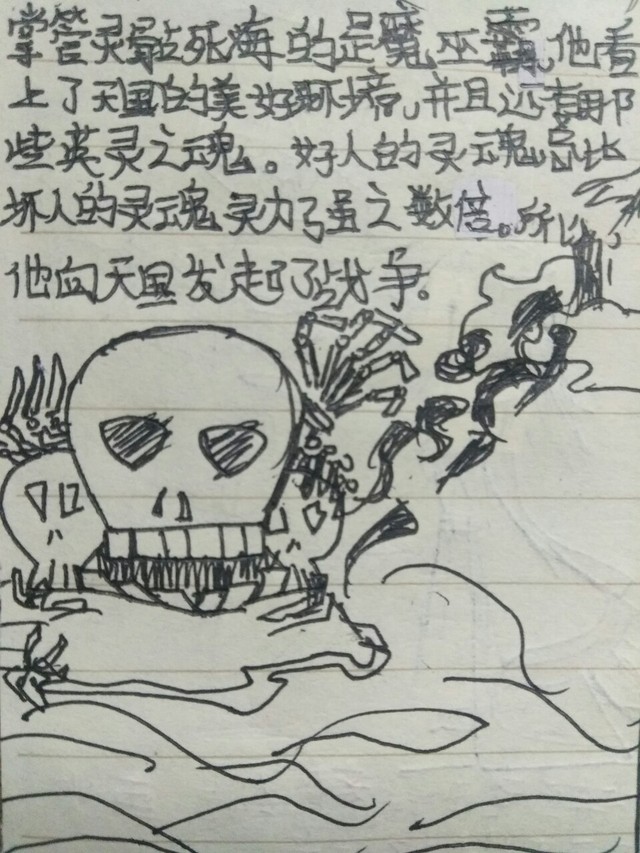 掌管灵骷死海的是魔巫霸,他看
上了天国的美好环境,并且还有那
些英灵之魂。好人的灵魂总比
坏人的灵魂灵力强之数倍。所以
他向天国发起了战争。